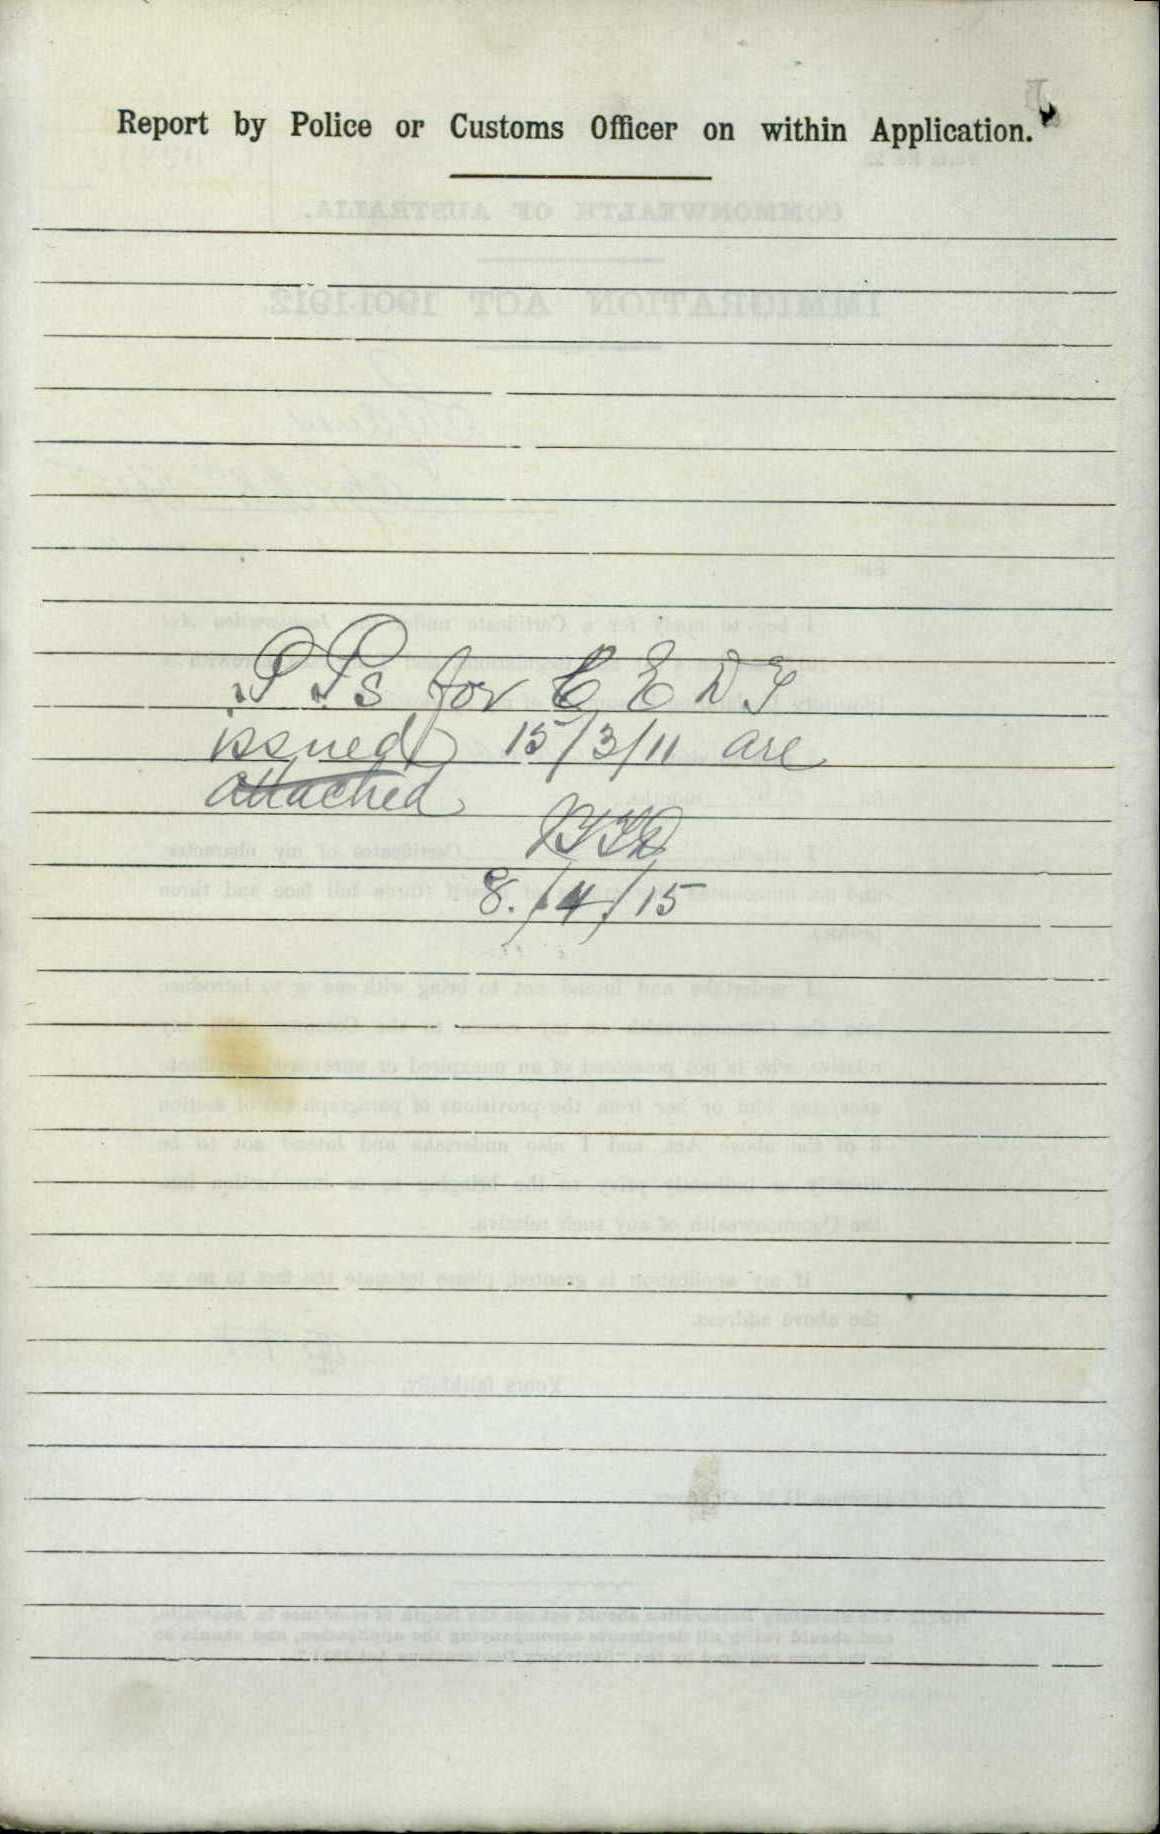 Report by Police or Customs Officer on within Application.
P Ps for C E D T
issued 15/3/11 are
attached
8./4/15